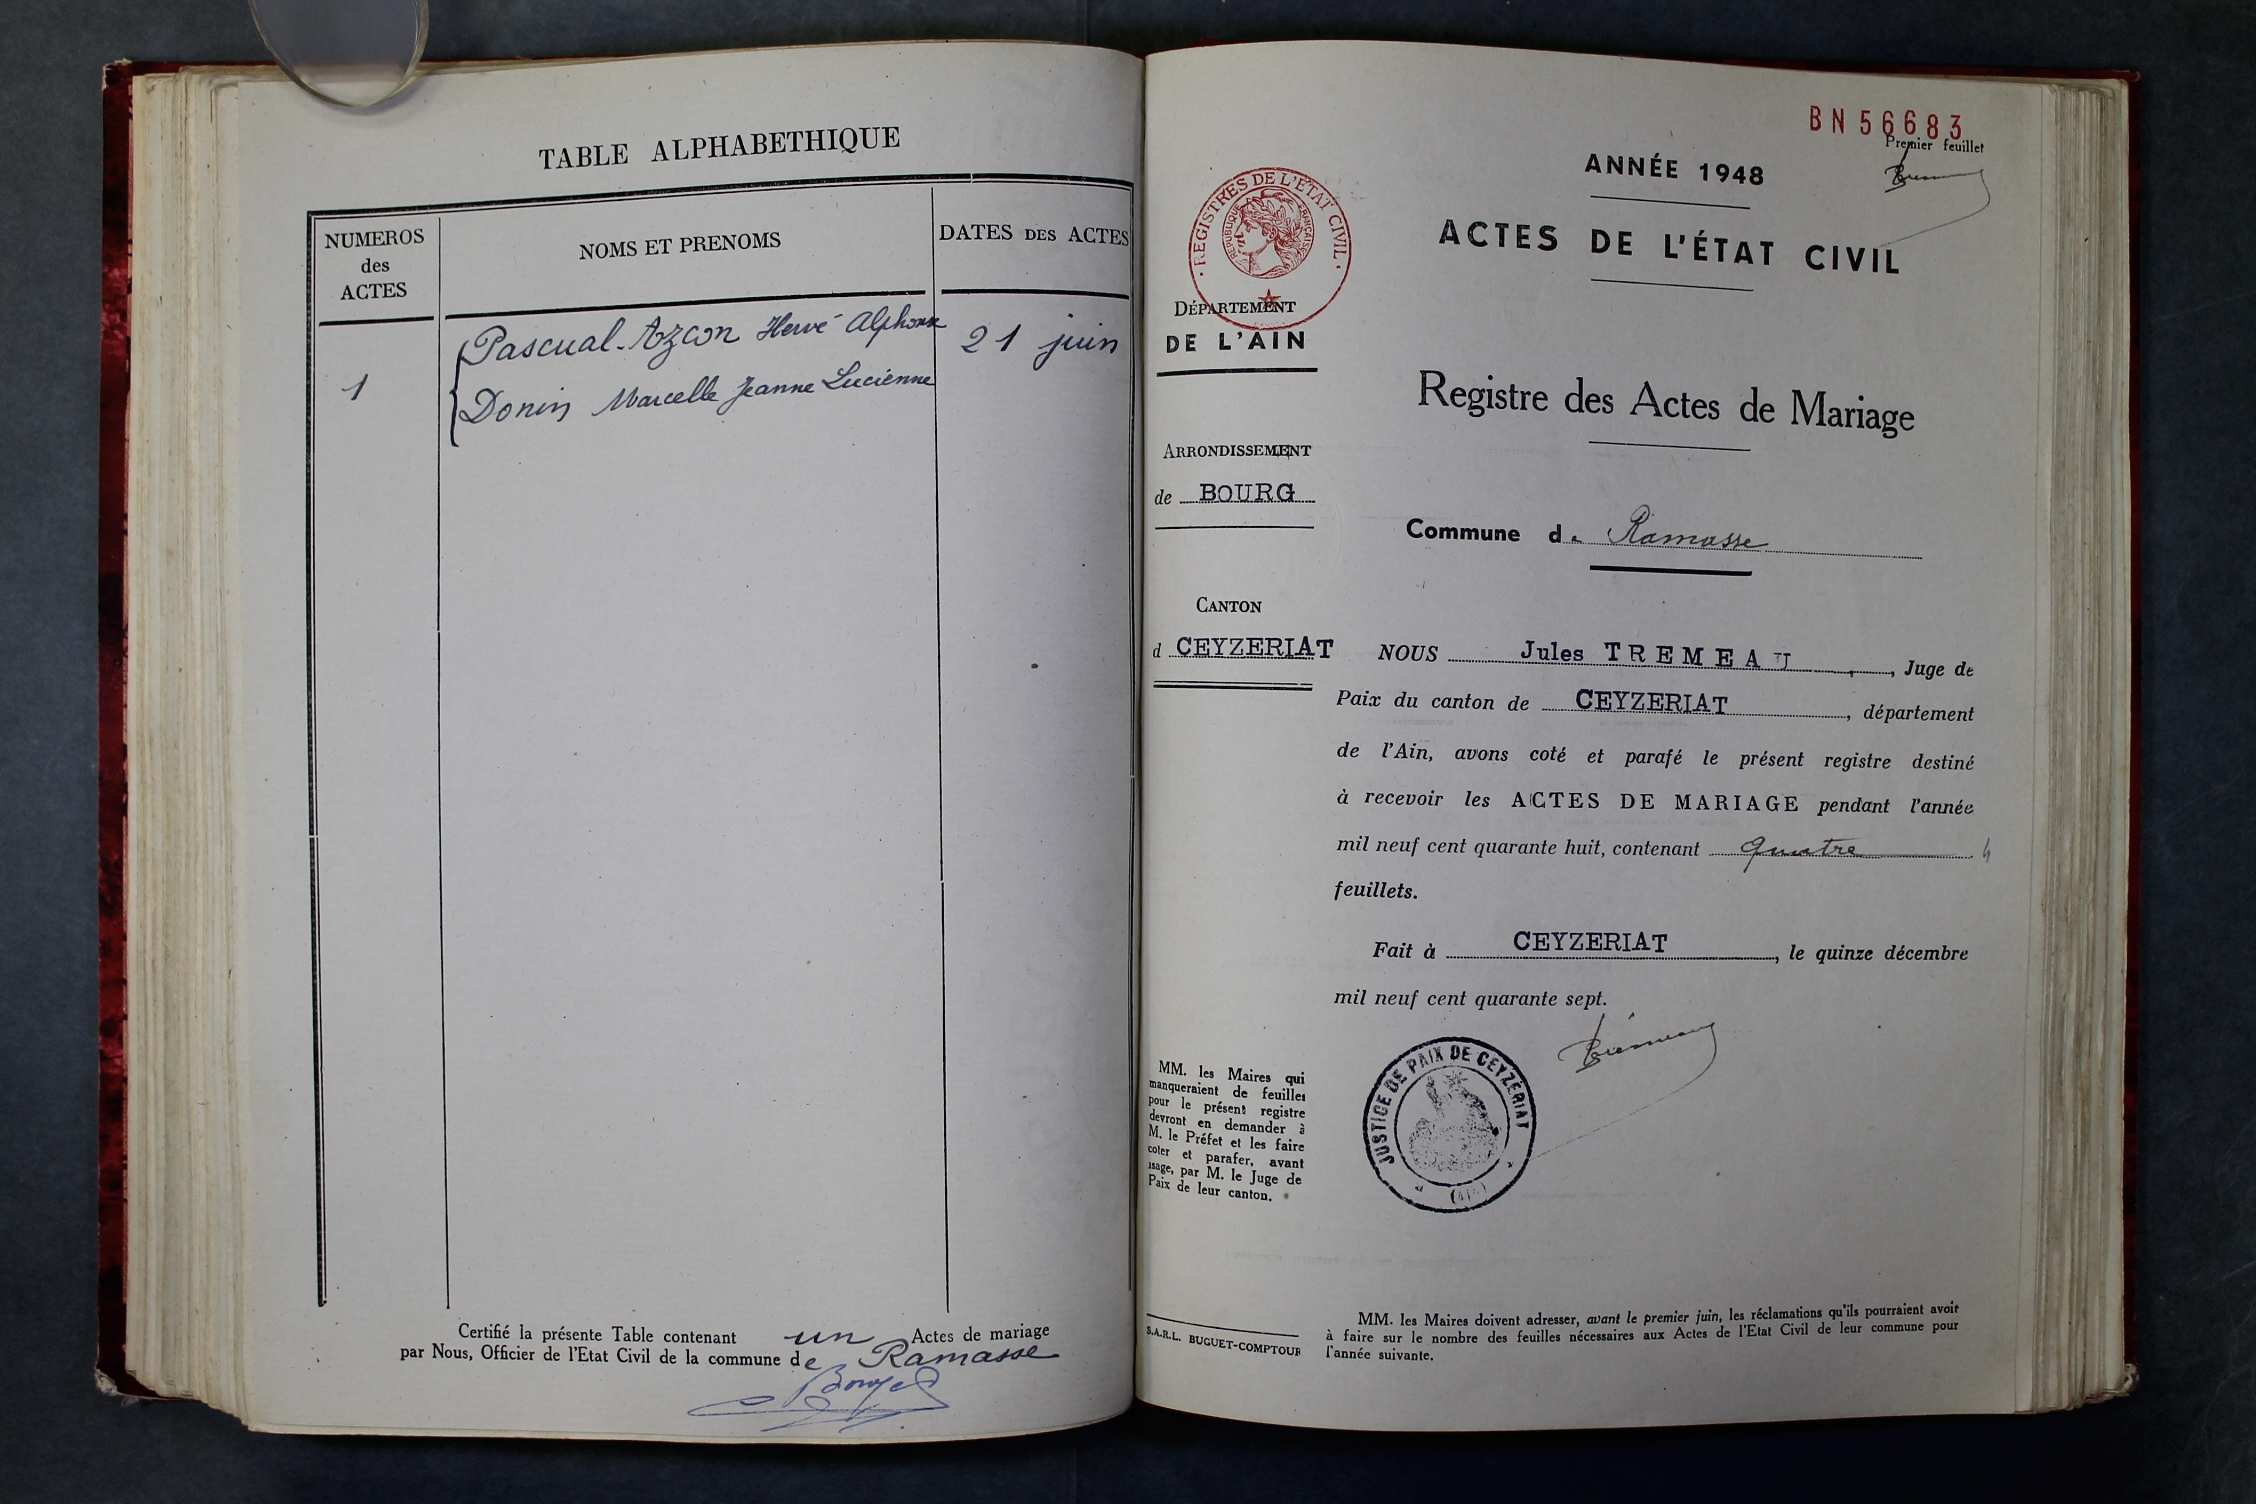 TABLE ALPHABETHIQUE
NUMEROS
des
ACTES
NOMS ET PRENOMS
DATES DES ACTES
1
Pascual-Azcon Hervé Alphonse
21 juin
Donin Marcelle Jeanne Lucienne
Certifié la présente Table contenant un Actes de mariage
par Nous, Officier de l'Etat Civil de la commune de Ramasse
BN 56683
Premier feuillet
ANNÉE 1948
ACTES DE L'ÉTAT CIVIL
REGISTRES DE L'ÉTAT CIVIL
REPUBLIQUE FRANCAISE
DÉPARTEMENT
DE L'AIN
Registre des Actes de Mariage
ARRONDISSEMENT
de BOURG
Commune de Ramasse
CANTON
d CEYZERIAT
NOUS Jules TREMEAU, Juge de
Paix du canton de CEYZERIAT, département
de l'Ain, avons coté et parafé le présent registre destiné
à recevoir les ACTES DE MARIAGE pendant l'année
mil neuf cent quarante huit, contenant quatre 4
feuillets.
Fait à CEYZERIAT, le quinze décembre
mil neuf cent quarante sept.
JUSTICE DE PAIX DE CEYZERIAT
(AIN)
MM. les Maires qui
manqueraient de feuilles
pour le présent registre
devront en demander à
M. le Préfet et les faire
coter et parafer, avant
usage, par M. le Juge de
Paix de leur canton.
S.A.R.L. BUGUET-COMPTOUR
MM. les Maires doivent adresser, avant le premier juin, les réclamations qu'ils pourraient avoir
à faire sur le nombre des feuilles nécessaires aux Actes de l'Etat Civil de leur commune pour
l'année suivante.